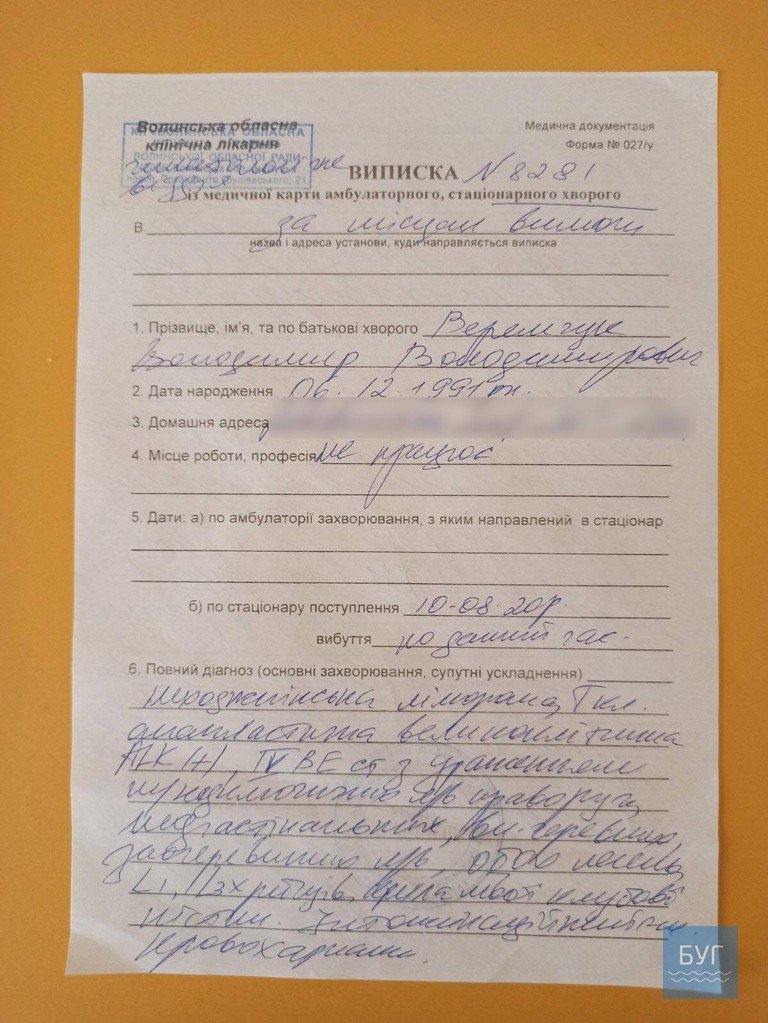 Волинська обласна
КП «ВОЛИНСЬКА ОБЛАСНА
клінічна лікарня
ВОЛИНСЬКОЇ ОБЛАСНОЇ РАДИ
21
Медична документація
Форма № 027/у
ВИПИСКА N 8281
із медичної карти амбулаторного, стаціонарного хворого
В за місцем вимоги
назва і адреса установи, куди направляється виписка
1. Прізвище, ім'я, та по батькові хворого Веремчук
Володимир Володимирович
2. Дата народження 06.12.1991
3. Домашня адреса
4. Місце роботи, професія не працює
5. Дати: а) по амбулаторії захворювання, з яким направлений в стаціонар
б) по стаціонару поступлення 10-08-20р.
вибуття по даний час.
6. Повний діагноз (основні захворювання, супутні ускладнення)
неходжкінська лімфома, Т кл.
анапластична великоклітинна
ALK (+), IV ВЕ ст з ураженням
л/в праворуч,
медіастинальних,
заочеревинних л/в, обох легень,
L1, клубової
кістки.
кровохаркання.
БУГ